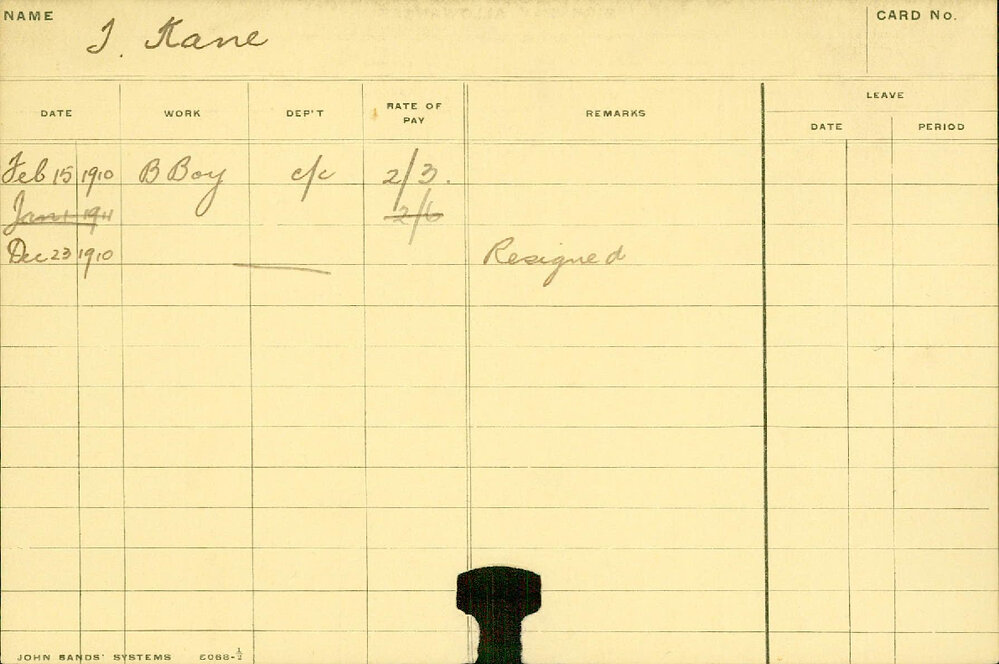 NAME J. Kane CARD No.
LEAVE
DATE WORK DEP'T RATE OF PAY REMARKS DATE PERIOD
Feb 15 1910 B Boy c/c 2/3.
Jan 1 1911 2/6
Dec 23 1910 Resigned
JOHN SANDS' SYSTEMS E068-½